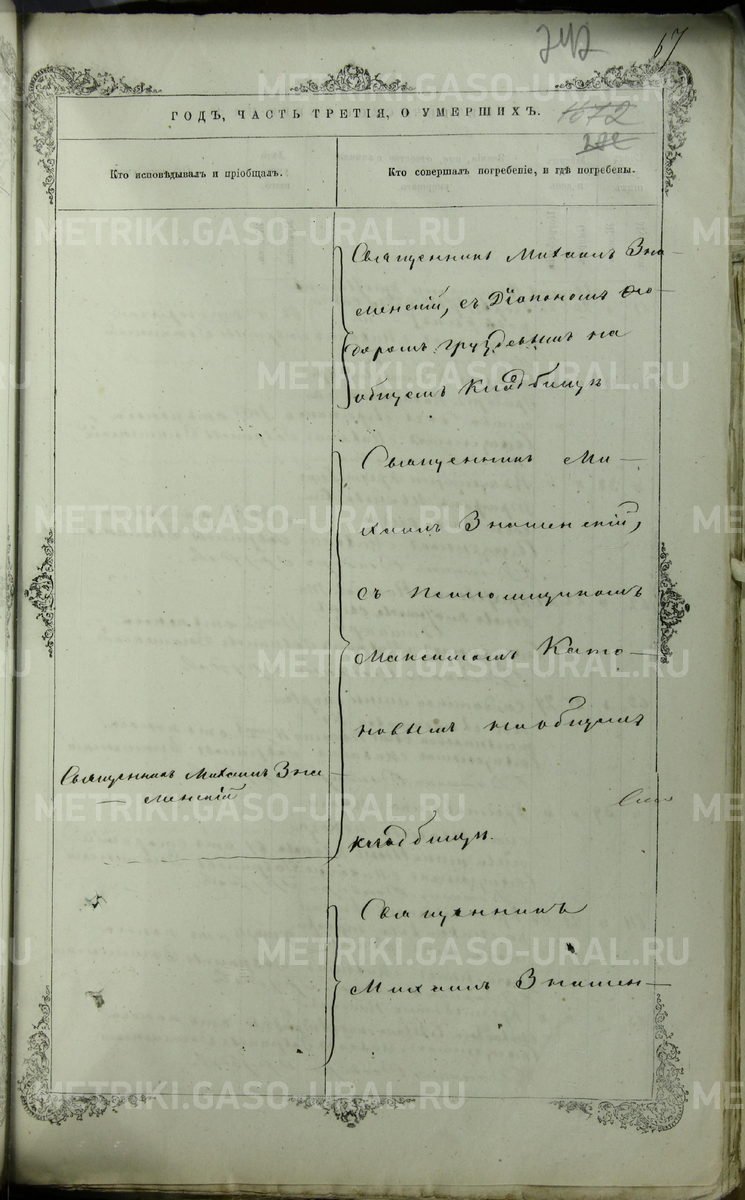 242
67
ГОДЪ, ЧАСТЬ ТРЕТІЯ, О УМЕРШИХЪ.
Кто исповѣдывалъ и пріобщалъ.
Кто совершалъ погребеніе, и гдѣ погребены.
Священникъ Михаилъ Зна-
менскій, съ Діакономъ Ѳео-
доромъ Груздевымъ на
общемъ Кладбищѣ
Священникъ Ми-
хаилъ Знаменскій,
съ Псаломщикомъ
Максимомъ Като-
новымъ на общемъ
кладбищѣ.
Священникъ Михаилъ Зна-
менскій
Священникъ
Михаилъ Знамен-
METRIKI.GASO-URAL.RU